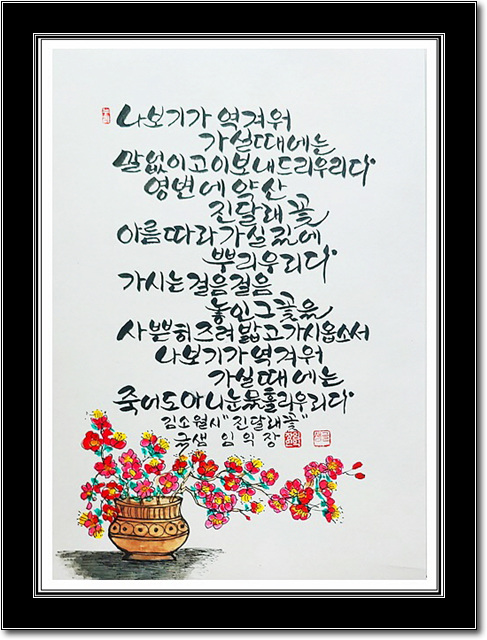 나보기가 역겨워
가실때에는
말없이고이보내드리우리다
영변에약산
진달래꽃
아름따라가실길에
뿌리우리다
가시는걸음걸음
놓인그꽃을
사쁜히즈려밟고가시옵소서
나보기가역겨워
가실때에는
죽어도아니눈물흘리우리다
김소월시"진달래꽃"
글샘 임 익 장